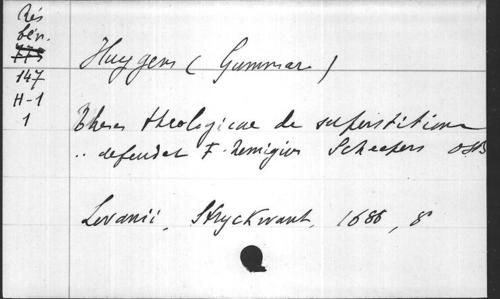 Rés
bén.
775
147
H-1
1
Huygens (Gummar)
Theses theologicae de superstitione
.. defendet F. Remigius Scheepers OSB
Lovanii, Stryckwant, 1686, 8°